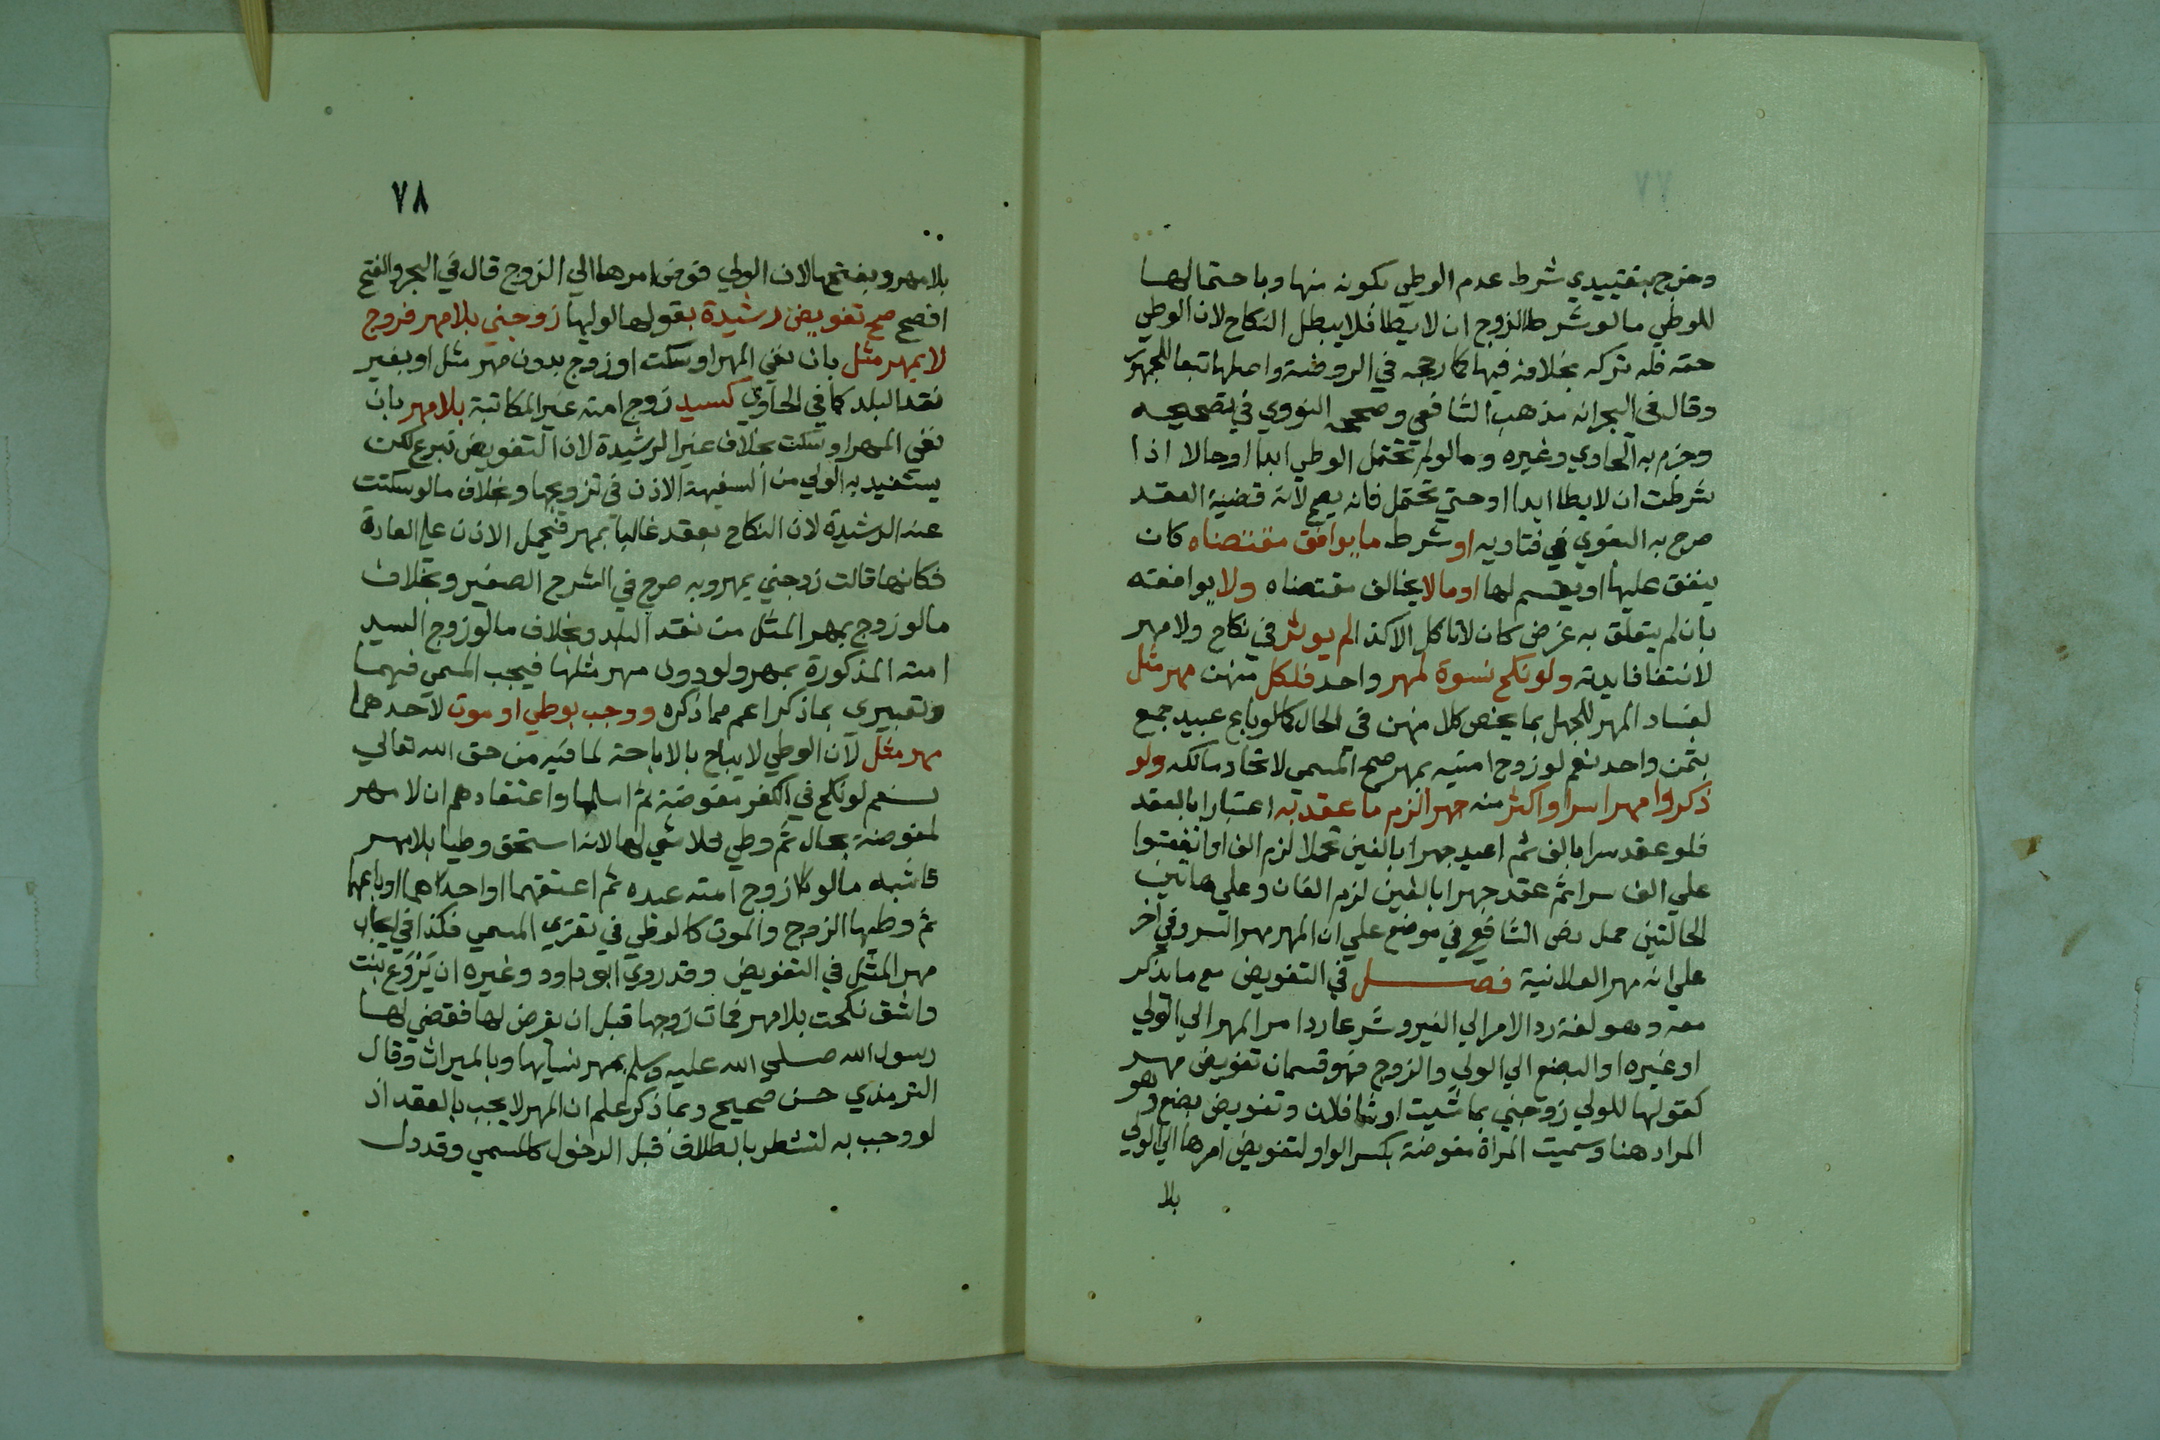 وخرج بتقييدي شرط عدم الوطي بكونه منها وباحتمالها
للوطي مالو شرط الزوج ان لا يطا فلا يبطل النكاح لان الوطي
حقه فله تركه بخلافه فيها كما رجحه في الروضة واصلها تبعا للجمهور
وقال في البحر انه مذهب الشافعي وصححه النووي في تصحيحه
وجزم به الحاوي وغيره ومالو لم تحتمل الوطي ابدا او حالا اذا
شرطت ان لا يطا ابدا او حتي تحتمل فانه يصح لانه قضية العقد
صرح به البغوي في فتاويه او شرط ما يوافق مقتضاه كان
ينفق عليها او يقسم لها او مالا يخالف مقتضاه ولا يوافقه
بان لم يتعلق به غرض كان لا تاكل الا كذا لم يوثر في نكاح ولا مهر
لانتفا فايدته ولو نكح نسوة بمهر واحد فلكل منهن مهر مثل
لفساد المهر للجهل بما يخص كلا منهن في الحال كما لو باع عبيد جمع
بثمن واحد نعم لو زوج امتيه بمهر صح المسمي لاتحاد مالكه ولو
ذكروا مهرا سرا واكثر منه جهرا لزم ما عقد به اعتبارا بالعقد
فلو عقد سرا بالف ثم اعيد جهرا بالفين تجملا لزم الف او اتفقوا
علي الف سرا ثم عقد جهرا بالفين لزم الفان وعلي هاتين
الحالتين حمل نص الشافعي في موضع علي ان المهر مهر السر وفي اخر
علي انه مهر العلانية فصل في التفويض مع ما يذكر
معه وهو لغة رد الامر الي الغير وشرعا رد امر المهر الي الولي
او غيره او البضع الي الولي والزوج فهو قسمان تفويض مهر
كقولها للولي زوجني بما شيت او شا فلان وتفويض بضع وهو
المراد هنا وسميت المراة مفوضة بكسر الواو لتفويض امرها الي الولي
بلا
٧٨
بلا مهر وبفتحها لان الولي فوض امرها الي الزوج قال في البحر والفتح
افصح صح تفويض رشيدة بقولها لوليها زوجني بلا مهر فزوج
لا بمهر مثل بان نفي المهر او سكت او زوج بدون مهر مثل او بغير
نقد البلد كما في الحاوي كسيد زوج امته غير المكاتبة بلا مهر بان
نفي المهر او سكت بخلاف غير الرشيدة لان التفويض تبرع لكن
يستفيد به الولي من السفيهة الاذن في تزويجها وبخلاف مالو سكتت
عنه الرشيدة لان النكاح يعقد غالبا بمهر فيحمل الاذن علي العادة
فكانها قالت زوجني بمهر وبه صرح في الشرح الصغير وبخلاف
مالو زوج بمهر المثل من نقد البلد وبخلاف مالو زوج السيد
امته المذكورة بمهر ولو دون مهر مثلها فيجب المسمي فيهما
وتعبيري بما ذكر اعم مما ذكره ووجب بوطي او موت لاحدهما
مهر مثل لان الوطي لا يباح بالاباحة لما فيه من حق الله تعالي
نعم لو نكح في الكفر مفوضة ثم اسلما واعتقادهم ان لا مهر
لمفوضة بحال ثم وطي فلا شي لها لانه استحق وطيا بلا مهر
فاشبه مالو زوج امته عبده ثم اعتقهما او احدهما او باعهما
ثم وطيها الزوج والموت كالوطي في تقرير المسمي فكذا في ايجاب
مهر المثل في التفويض وقد روي ابو داود وغيره ان بروع بنت
واشق نكحت بلا مهر فمات زوجها قبل ان يفرض لها فقضي لها
رسول الله صلي الله عليه وسلم بمهر نسايها وبالميراث وقال
الترمذي حسن صحيح وبما ذكر علم ان المهر لا يجب بالعقد اذ
لو وجب به لتشطر بالطلاق قبل الدخول كالمسمي وقد دل